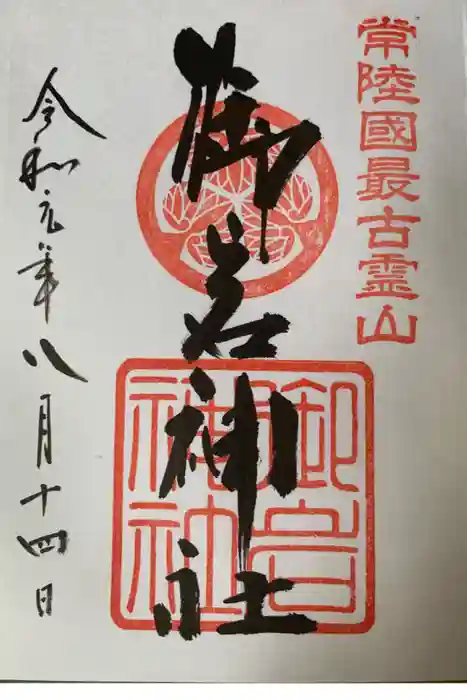 常陸國最古霊山
御岩神社
御岩
神社
令和元年八月十四日